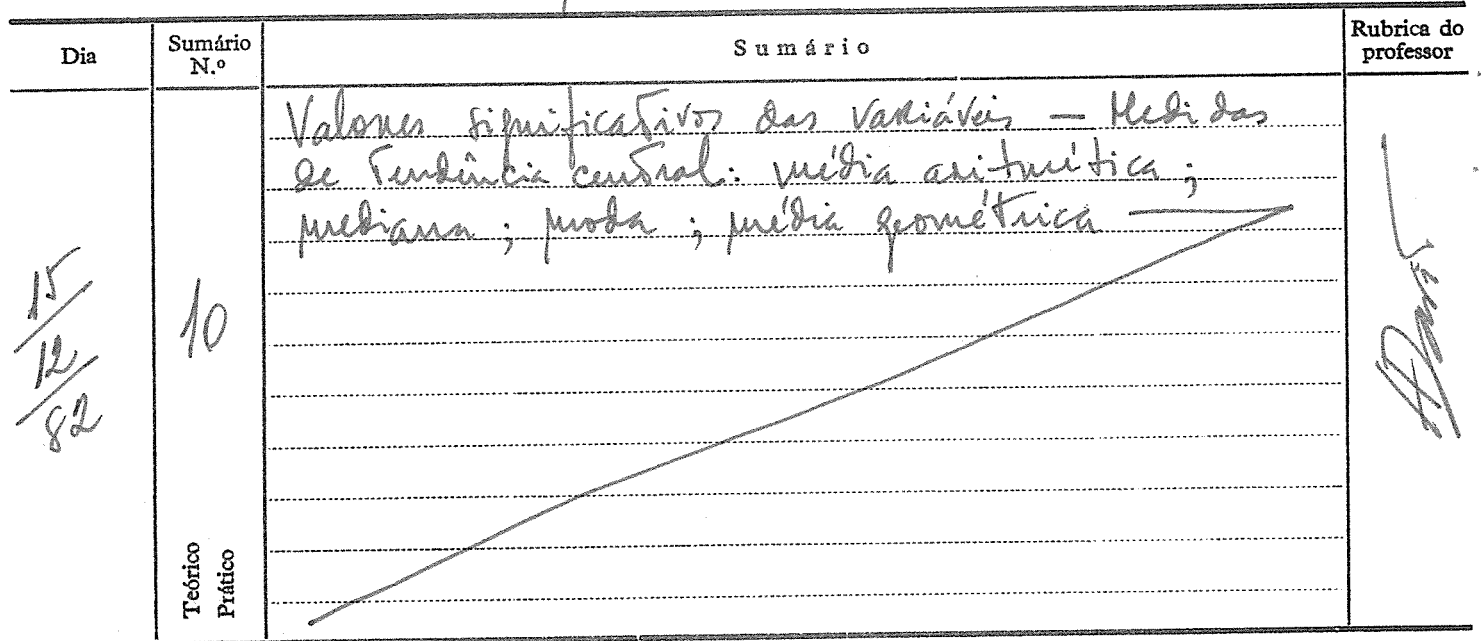 Dia
Sumário N.º
Sumário
Rubrica do professor
15/12/82
10
Valores significativos das variáveis — Medidas
de Tendência central: média aritmética ;
mediana ; moda ; média geométrica —
Teórico
Prático